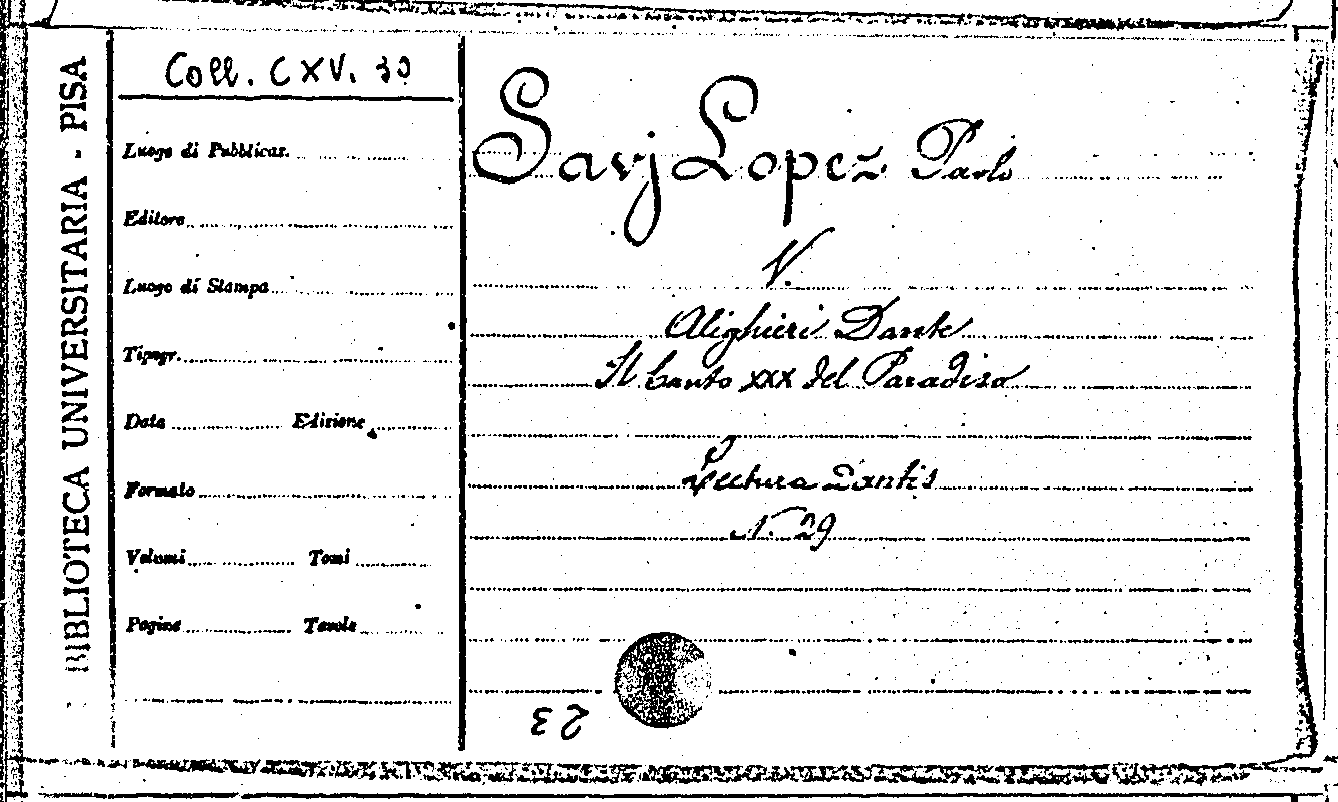 BIBLIOTECA UNIVERSITARIA - PISA
Coll. CXV. 30
Luogo di Pubblicaz.
Editore
Luogo di Stampa
Tipogr.
Data Edizione
Formato
Volumi Tomi
Pagine Tavole
Savj Lopez Paolo
V.
Alighieri Dante
Il Canto XXX del Paradiso
Lectura Dantis
N. 29
23